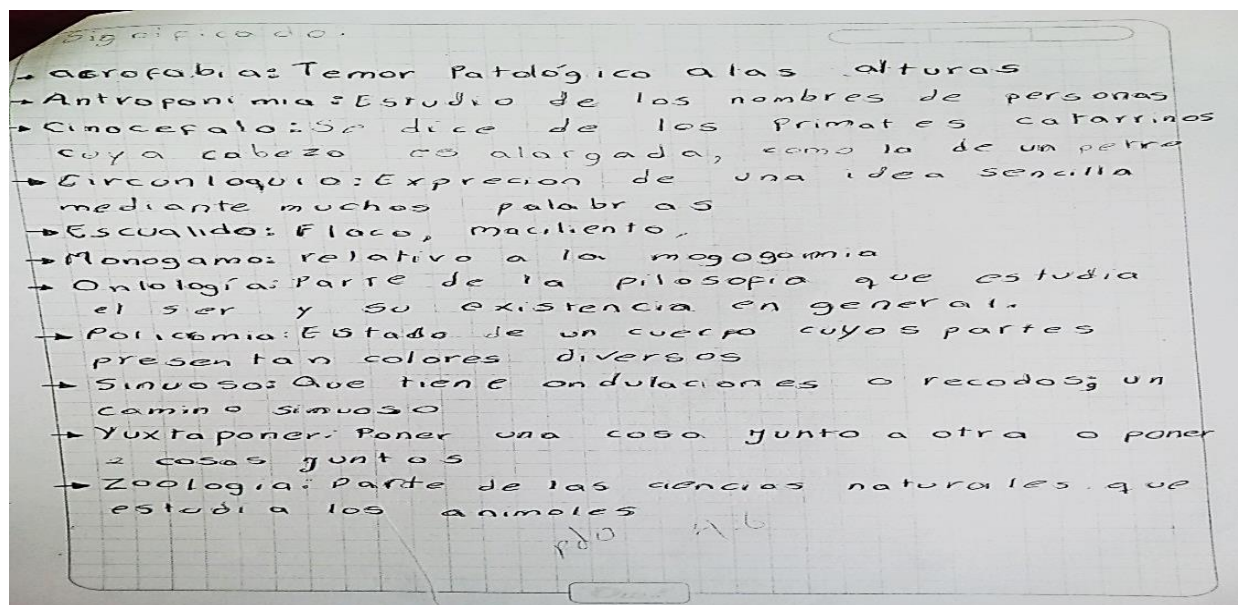 Significado.
→ acrofobia: Temor Patológico a las alturas
→ Antroponimia: Estudio de los nombres de personas
→ Cinocefalo: Se dice de los Primates catarrinos
cuya cabeza es alargada, como la de un perro
→ Circunloquio: Exprecion de una idea sencilla
mediante muchos palabras
→ Escualido: Flaco, maciliento,
→ Monogamo: relativo a la mogogamia
→ Ontología: Parte de la pilosofia que estudia
el ser y su existencia en general.
→ Policromia: Estado de un cuerpo cuyos partes
presentan colores diversos
→ Sinuoso: Que tiene ondulaciones o recodos; un
camino sinuoso
→ Yuxtaponer: Poner una cosa gunto a otra o poner
2 cosas guntos
→ Zoologia: Parte de las ciencias naturales que
estudia los animales